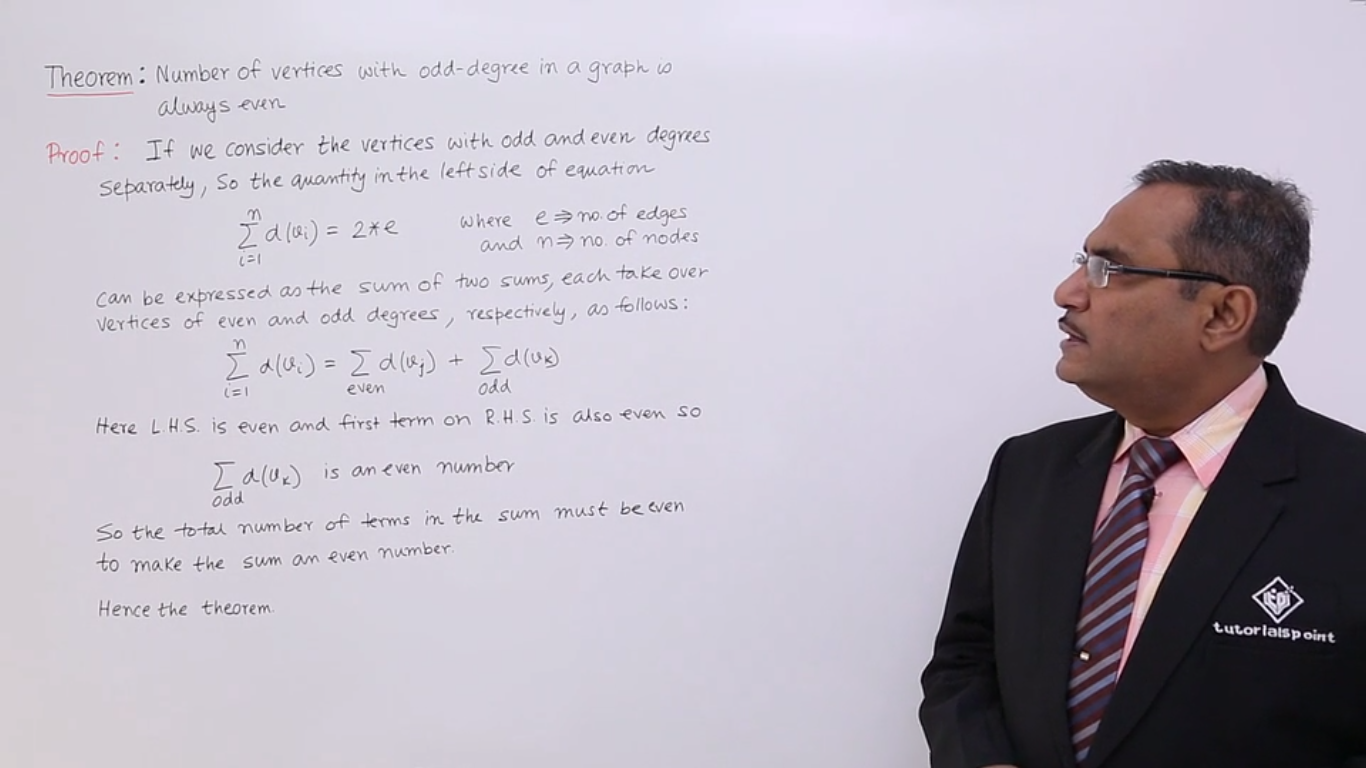 Theorem: Number of vertices with odd-degree in a graph is
always even
Proof: If we consider the vertices with odd and even degrees
separately, So the quantity in the left side of equation
n
∑ d(vi) = 2*e where e ⇒ no. of edges
i=1 and n ⇒ no. of nodes
can be expressed as the sum of two sums, each take over
vertices of even and odd degrees, respectively, as follows:
n
∑ d(vi) = ∑ d(vj) + ∑ d(vk)
i=1 even odd
Here L.H.S. is even and first term on R.H.S. is also even so
∑ d(vk) is an even number
odd
So the total number of terms in the sum must be even
to make the sum an even number.
Hence the theorem.
tutorialspoint